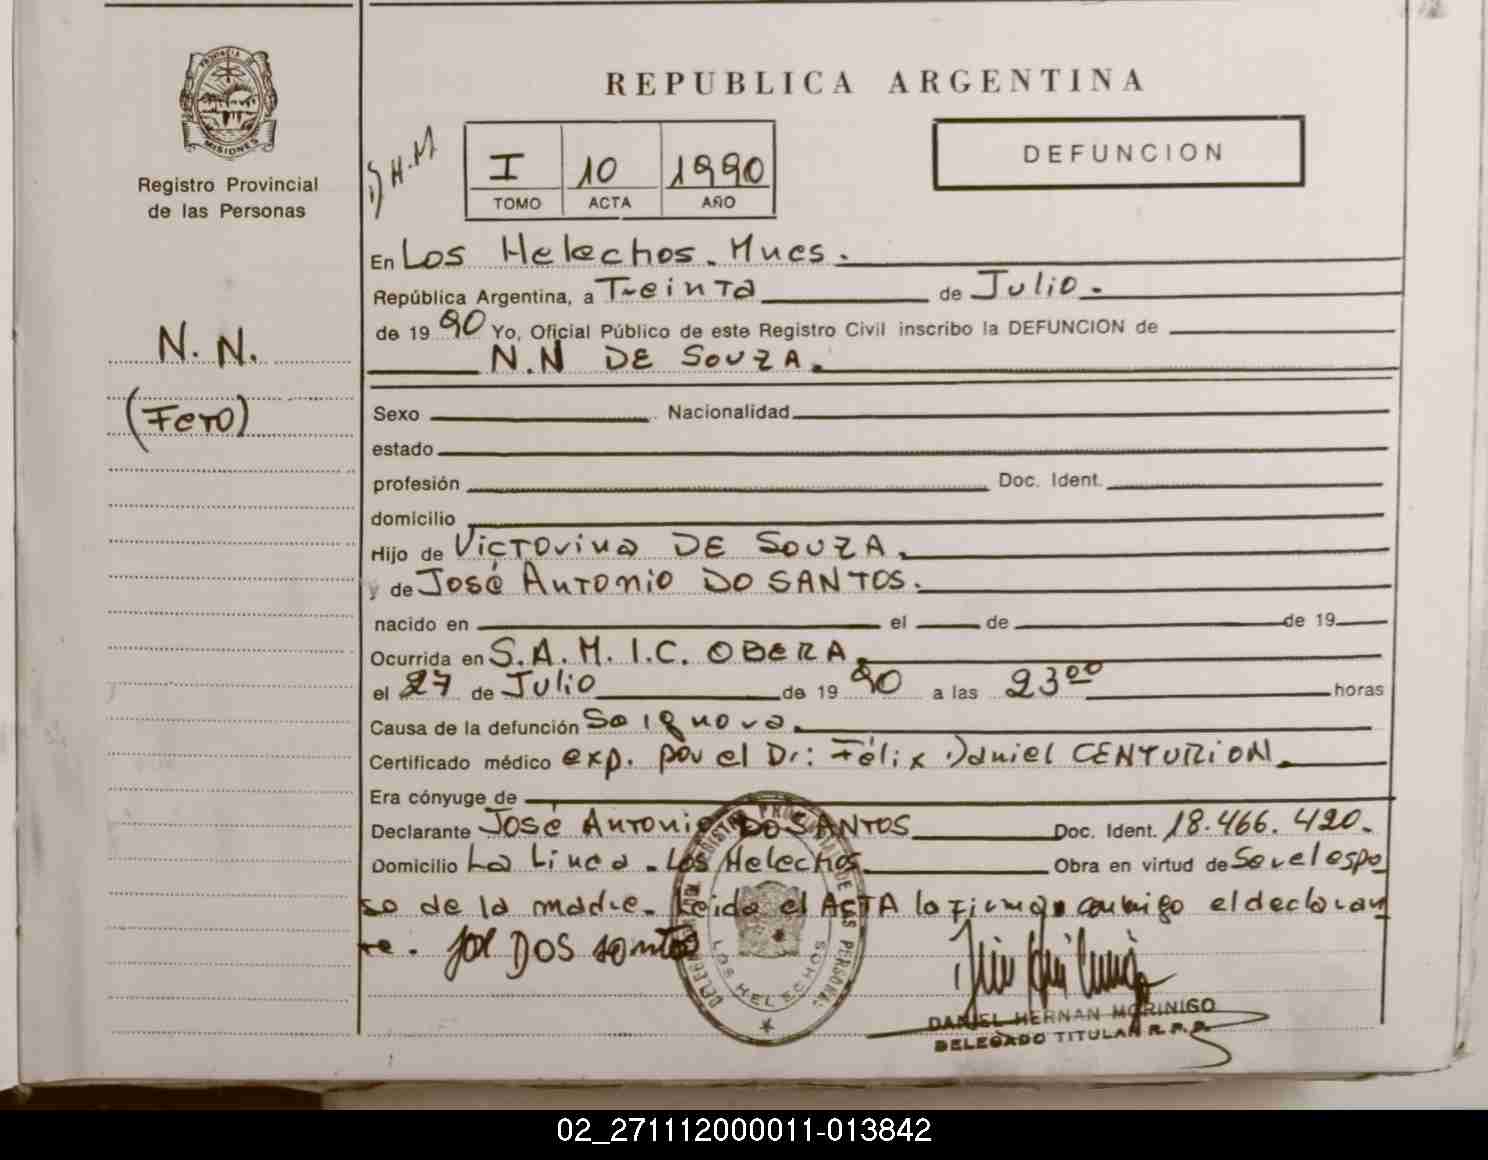 REPUBLICA ARGENTINA
PROVINCIA DE
MISIONES
Registro Provincial
de las Personas
D.H.M
I 10 1990
TOMO ACTA AÑO
DEFUNCION
N. N.
(Feto)
En Los Helechos. Mnes.
República Argentina, a Treinta de Julio.
de 19 90 Yo, Oficial Público de este Registro Civil inscribo la DEFUNCION de
N.N DE SOUZA.
Sexo Nacionalidad
estado
profesión Doc. Ident.
domicilio
Hijo de Victorina DE SOUZA.
y de José Antonio DO SANTOS.
nacido en el de de 19
Ocurrida en S.A.M.I.C. OBERA.
el 27 de Julio de 19 90 a las 23 00 horas
Causa de la defunción Se ignora.
Certificado médico exp. por el Dr: Félix Daniel CENTURION.
Era cónyuge de
Declarante José Antonio DO SANTOS Doc. Ident. 18.466.420.
Domicilio La Linea. Los Helechos Obra en virtud de Ser el espo
so de la madre. Leida el ACTA la firma conmigo el declaran
te. José DOS santos
LOS HELECHOS
DANIEL HERNAN MORINIGO
DELEGADO TITULAR R.P.P.
02_271112000011-013842